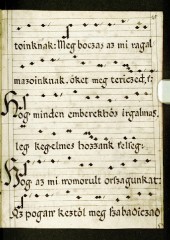 toinknak: Meg boczas az mi ragal
mazoinknak. őket meg tericzed,
Hog minden emberekhős irgalmas,
leg kegelmes hozzank felleg:
Hog az mi nomorult orszagunkat:
az pogan keztől meg szabadiczad